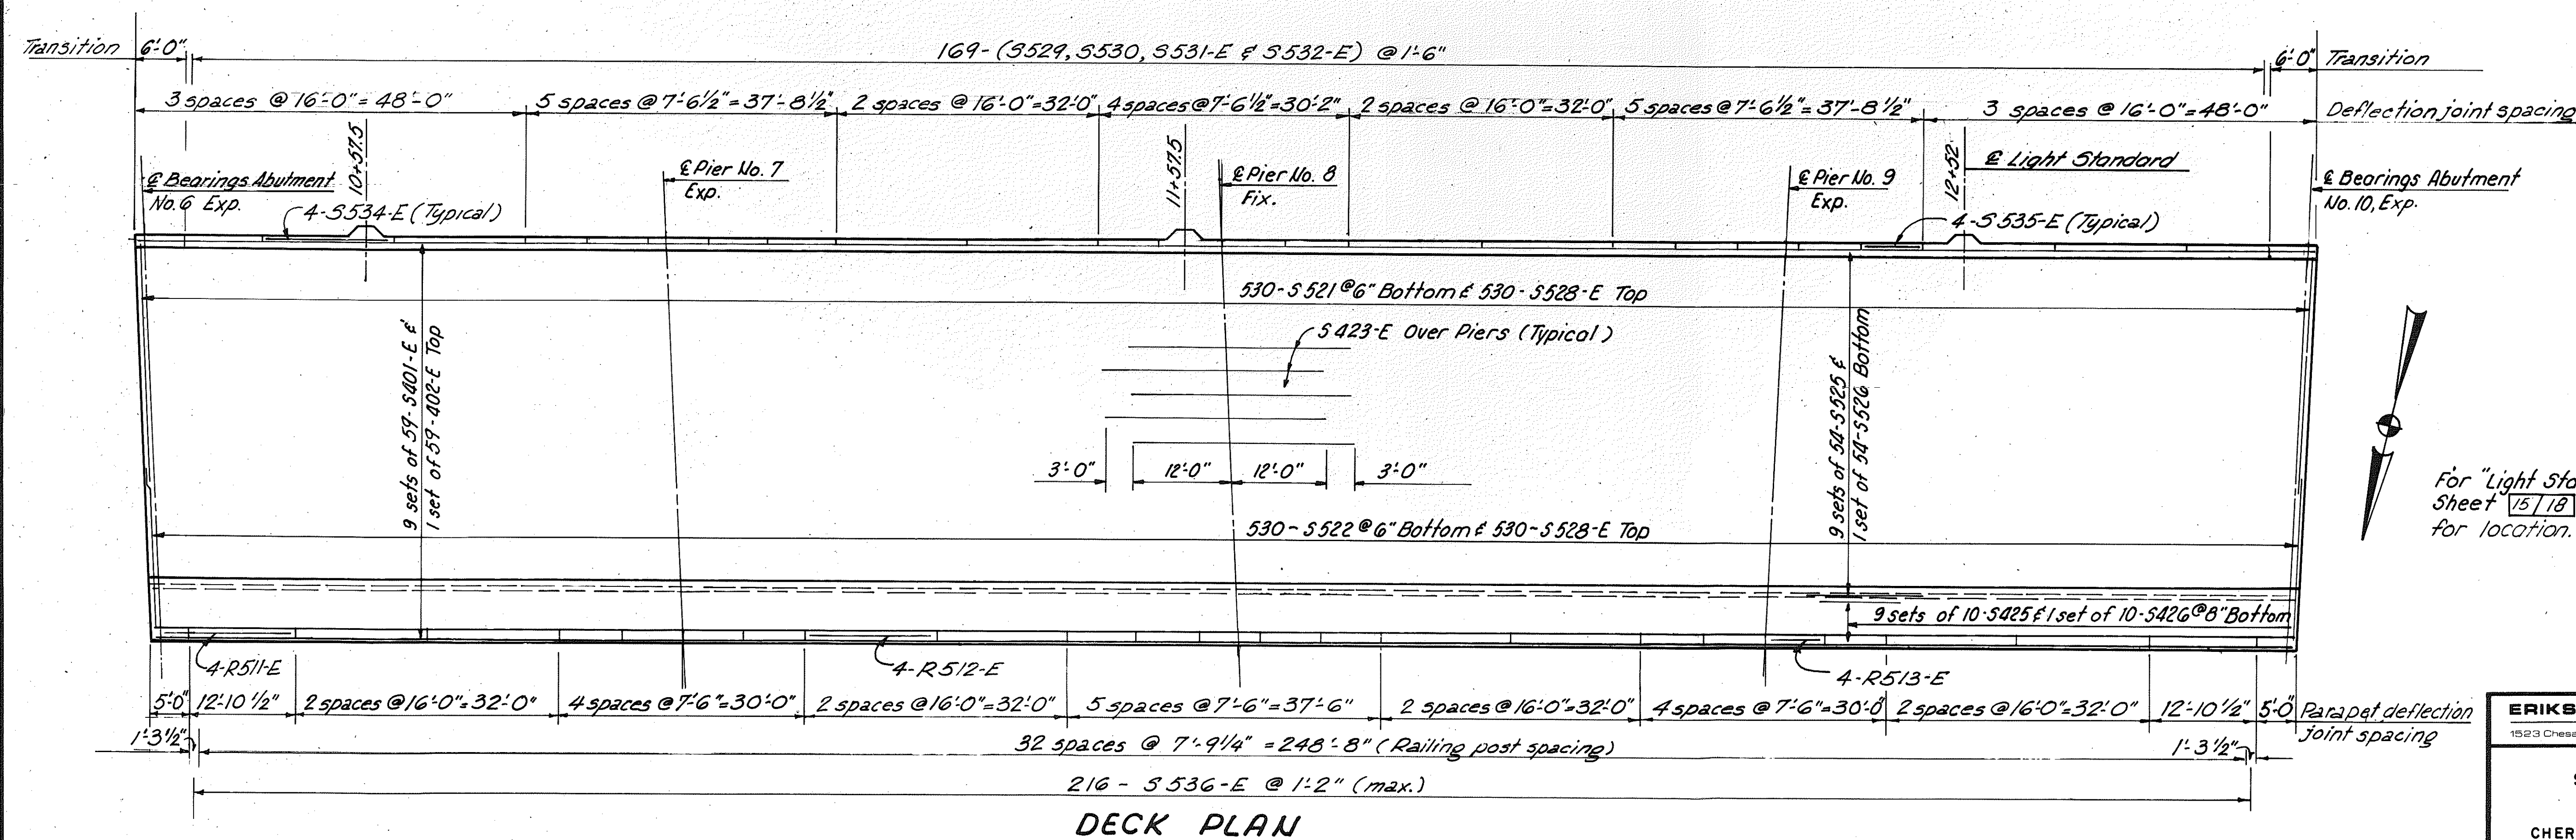 Transition 6'-0" 169-(S529, S530, S531-E & S532-E) @ 1'-6" 6'-0" Transition
3 spaces @ 16'-0" = 48'-0" 5 spaces @ 7'-6 1/2" = 37'-8 1/2" 2 spaces @ 16'-0" = 32'-0" 4 spaces @ 7'-6 1/2" = 30'-2" 2 spaces @ 16'-0" = 32'-0" 5 spaces @ 7'-6 1/2" = 37'-8 1/2" 3 spaces @ 16'-0" = 48'-0" Deflection joint spacing
℄ Bearings Abutment
No. 6 Exp.
10+57.5
℄ Pier No. 7
Exp.
11+57.5
℄ Pier No. 8
Fix.
℄ Pier No. 9
Exp.
12+52
℄ Light Standard
℄ Bearings Abutment
No. 10, Exp.
4-S534-E (Typical)
4-S535-E (Typical)
530-S521 @ 6" Bottom & 530-S528-E Top
S423-E Over Piers (Typical)
9 sets of 59-S401-E &
1 set of 59-402-E Top
9 sets of 54-S525 &
1 set of 54-S526 Bottom
3'-0" 12'-0" 12'-0" 3'-0"
For "Light Sta
Sheet 15/18
for location.
530-S522 @ 6" Bottom & 530-S528-E Top
9 sets of 10-S425 & 1 set of 10-S426 @ 8" Bottom
4-R511-E
4-R512-E
4-R513-E
5'-0" 12'-10 1/2" 2 spaces @ 16'-0" = 32'-0" 4 spaces @ 7'-6" = 30'-0" 2 spaces @ 16'-0" = 32'-0" 5 spaces @ 7'-6" = 37'-6" 2 spaces @ 16'-0" = 32'-0" 4 spaces @ 7'-6" = 30'-0" 2 spaces @ 16'-0" = 32'-0" 12'-10 1/2" 5'-0" Parapet deflection
joint spacing
1'-3 1/2" 32 spaces @ 7'-9 1/4" = 248'-8" (Railing post spacing) 1'-3 1/2"
216 - S536-E @ 1'-2" (max.)
DECK PLAN
ERIKS
1523 Chesa
CHER